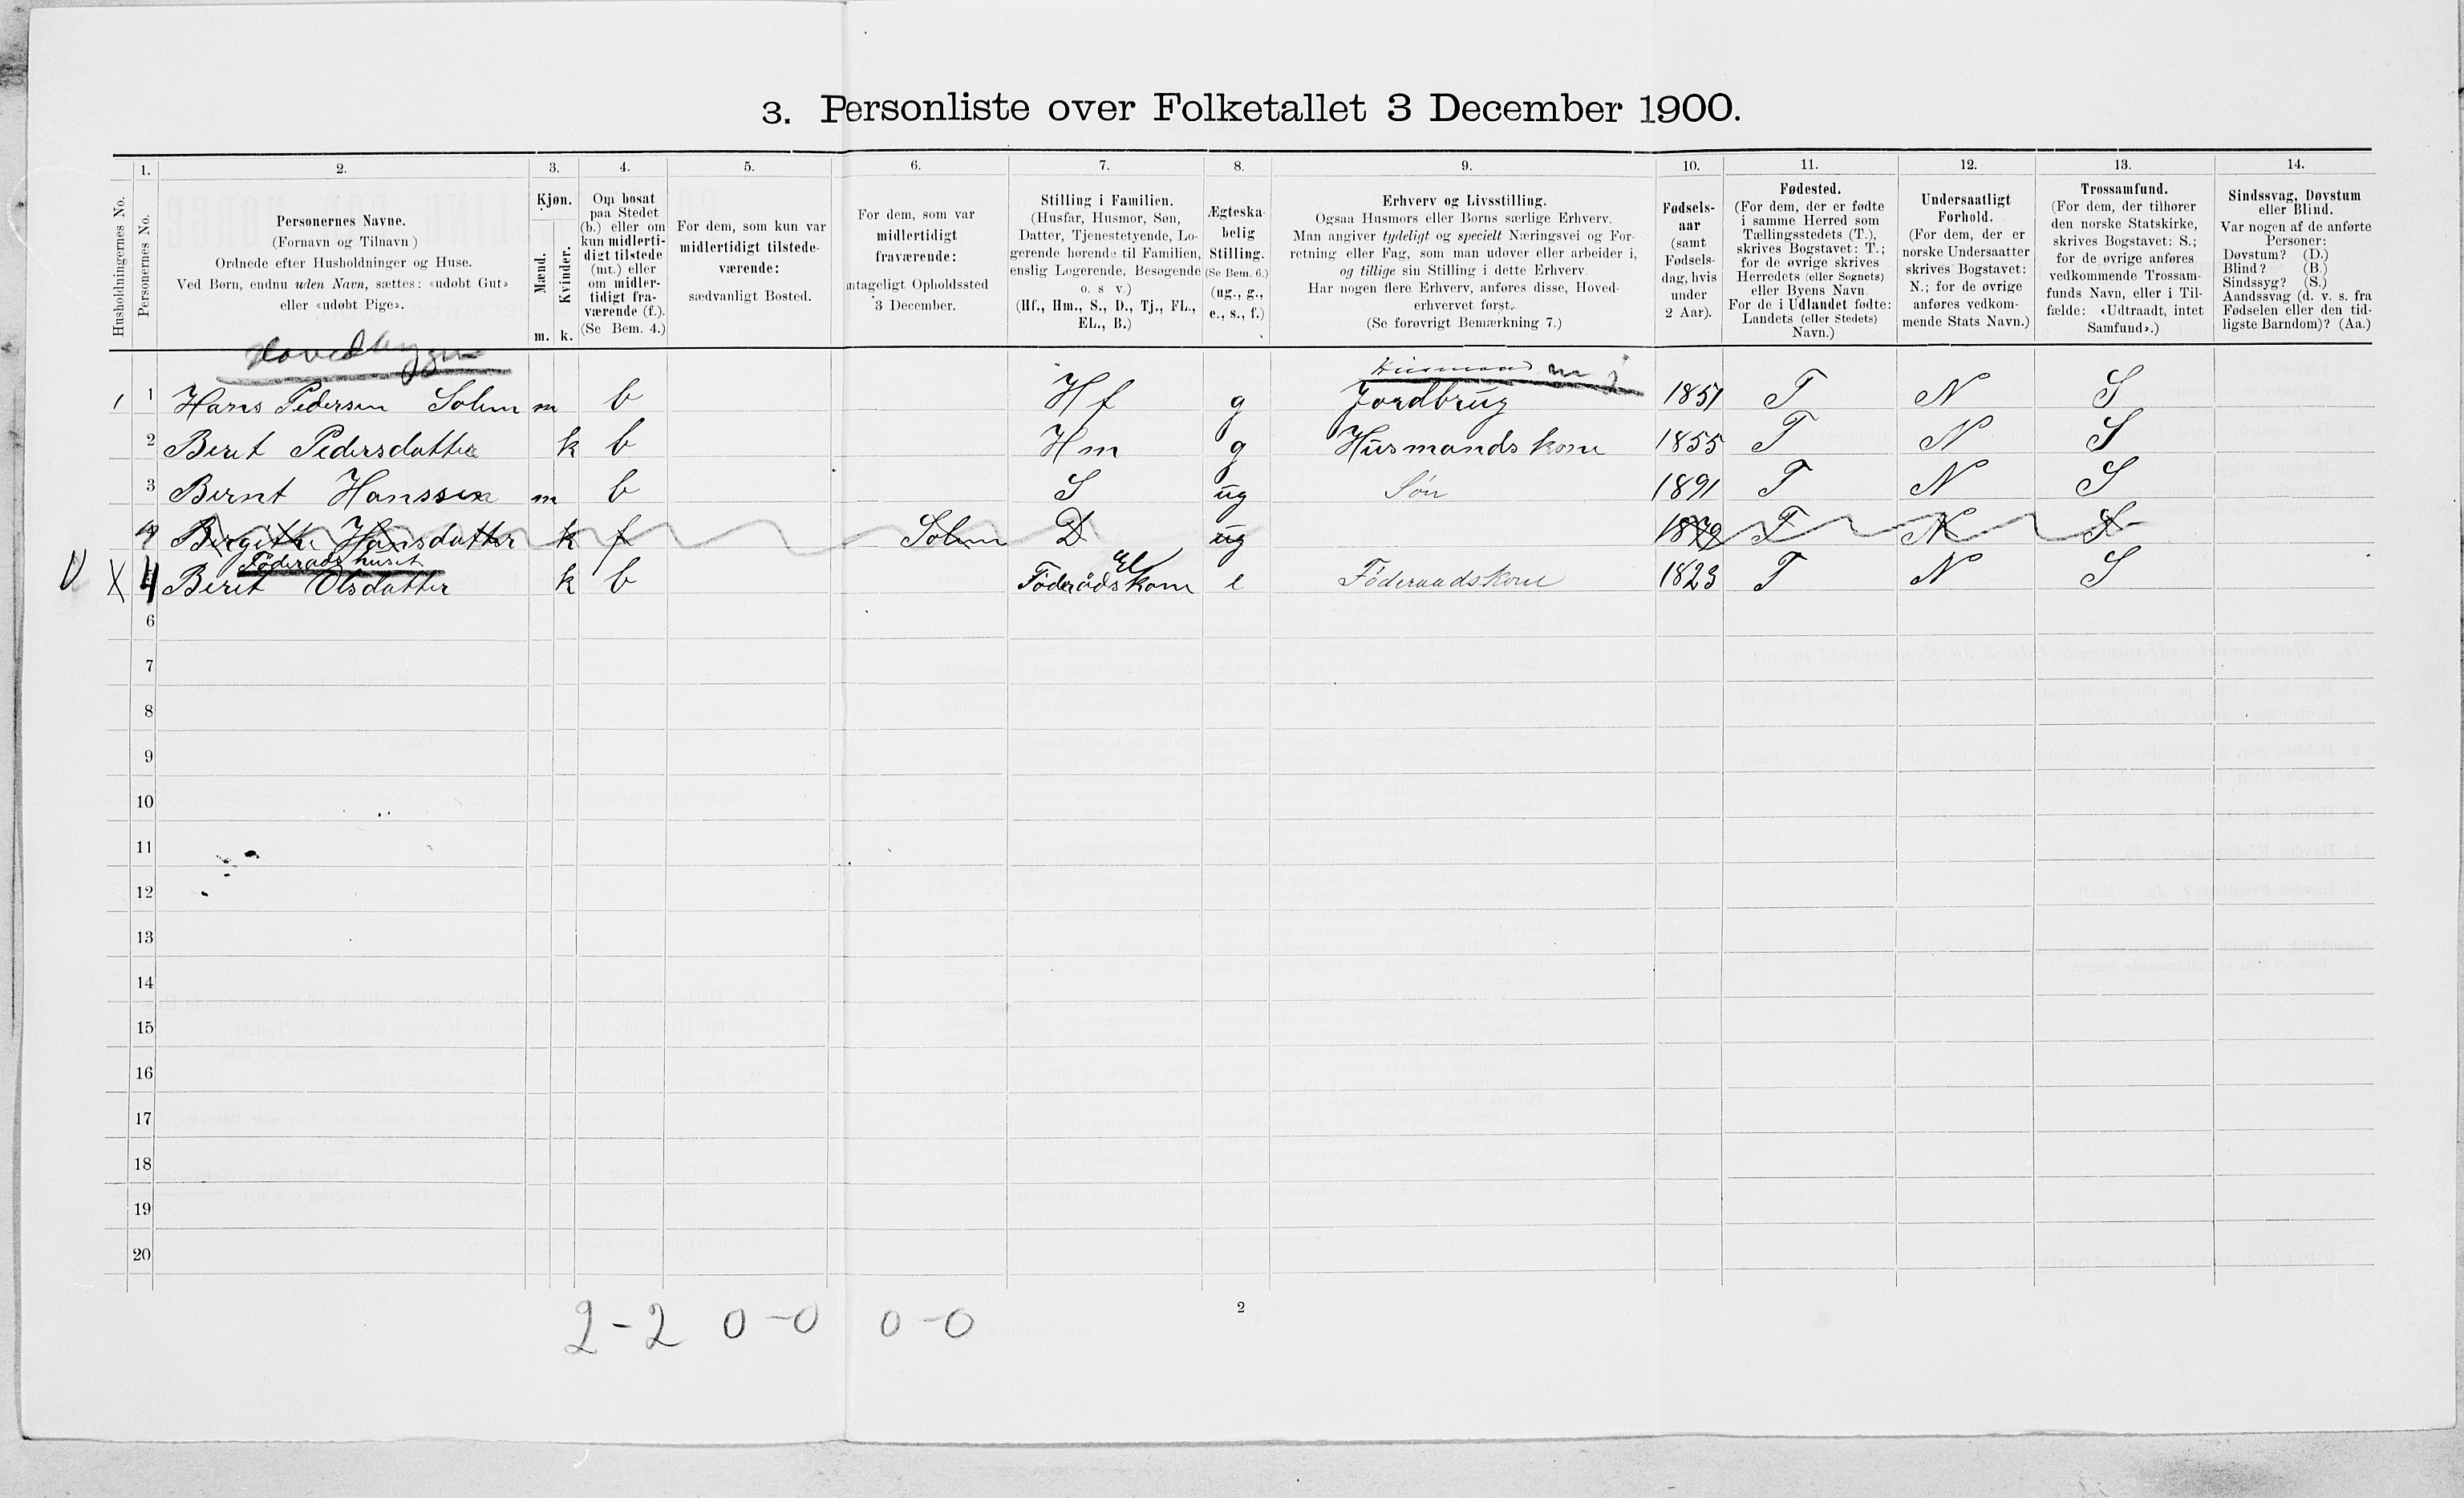 3. Personliste over Folketallet 3 December 1900.
1. 2. 3. 4. 5. 6. 7. 8. 9. 10. 11. 12. 13. 14.
Husholdningernes No.
Personernes No.
Personernes Navne.
(Fornavn og Tilnavn)
Ordnede efter Husholdninger og Huse.
Ved Børn, endnu uden Navn, sættes: «udøbt Gut»
eller «udøbt Pige».
Kjøn.
Mænd.
Kvinder.
m. k.
Om bosat
paa Stedet
(b.) eller om
kun midlerti-
digt tilstede
(mt.) eller
om midler-
tidigt fra-
værende (f.).
(Se Bem. 4.)
For dem, som kun var
midlertidigt tilstede-
værende:
sædvanligt Bosted.
For dem, som var
midlertidigt
fraværende:
ntageligt Opholdssted
3 December.
Stilling i Familien.
(Husfar, Husmor, Søn,
Datter, Tjenestetyende, Lo-
gerende hørende til Familien,
enslig Logerende, Besøgende
o. s v.)
(Hf., Hm., S., D., Tj., FL.,
EL., B.)
Ægteska-
belig
Stilling.
(Se Bem. 6.)
(ug., g.,
e., s., f.)
Erhverv og Livsstilling.
Ogsaa Husmors eller Børns særlige Erhverv.
Man angiver tydeligt og specielt Næringsvei og For-
retning eller Fag, som man udøver eller arbeider i,
og tillige sin Stilling i dette Erhverv.
Har nogen flere Erhverv, anføres disse, Hoved-
erhvervet først.
(Se forøvrigt Bemærkning 7.)
Fødsels-
aar
(samt
Fødsels-
dag, hvis
under
2 Aar).
Fødested.
(For dem, der er fødte
i samme Herred som
Tællingsstedets (T.),
skrives Bogstavet: T.;
for de øvrige skrives
Herredets (eller Sognets)
eller Byens Navn.
For de i Udlandet fødte:
Landets (eller Stedets)
Navn.)
Undersaatligt
Forhold.
(For dem, der er
norske Undersaatter
skrives Bogstavet:
N.; for de øvrige
anføres vedkom-
mende Stats Navn.)
Trossamfund.
(For dem, der tilhører
den norske Statskirke,
skrives Bogstavet: S.;
for de øvrige anføres
vedkommende Trossam-
funds Navn, eller i Til-
fælde: «Udtraadt, intet
Samfund».)
Sindssvag, Døvstum
eller Blind.
Var nogen af de anførte
Personer:
Døvstum? (D.)
Blind? (B.)
Sindssyg? (S.)
Aandssvag (d. v. s. fra
Fødselen eller den tid-
ligste Barndom)? (Aa.)
Husmand m j
1 1 Hans Pedersen Solem m b Hf g Jordbrug 1851 T N S
2 Berit Pedersdatter k b Hm g Husmandskone 1855 T N S
3 Bernt Hanssen m b S ug Søn 1891 T N S
4 Birgithe Hansdatter k f Solem D ug T N S
Føderaadshuset El
4 Berit Olsdatter k b Föderådskone e Föderaadskone 1823 T N S
6
7
8
9
10
11
12
13
14
15
16
17
18
19
20
2
2-2 0-0 0-0